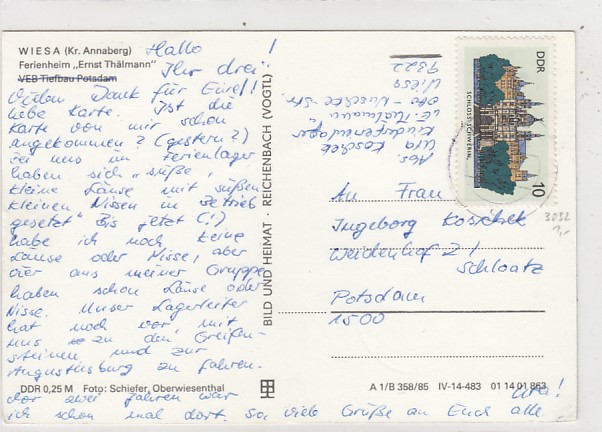 WIESA (Kr. Annaberg)
Ferienheim „Ernst Thälmann"
VEB Tiefbau Potsdam
Hallo !
Ihr drei!
Vielen Dank für Eure
liebe Karte. Ist die
Karte von mir schon
angekommen? (gestern?)
Bei uns im Ferienlager
haben sich "süße,
kleine Läuse mit süßen
kleinen Nissen in Betrieb
gesetzt" Bis jetzt (!)
habe ich noch keine
Läuse oder Nisse, aber
vier aus meiner Gruppe
haben schon Läuse oder
Nisse. Unser Lagerleiter
hat noch vor mit
uns zu den Greifen-
steinen und zur
Augustusburg zu fahren.
Vor zwei Jahren war
ich schon mal dort. So, viele Grüße an Euch alle
Uta!
BILD UND HEIMAT · REICHENBACH (VOGTL)
Abs.
Uta Koschek
Kinderferienlager
„E. Thälmann"
Otto - Str.
Wiesa
9322
DDR
SCHLOSS SCHWERIN
10
3032
1,-
An Frau
Ingeborg Koschek
Weidenhof 21
Schlaatz
Potsdam
1500
DDR 0,25 M Foto: Schiefer, Oberwiesenthal
A 1/B 358/85 IV-14-483 01 14 01 863